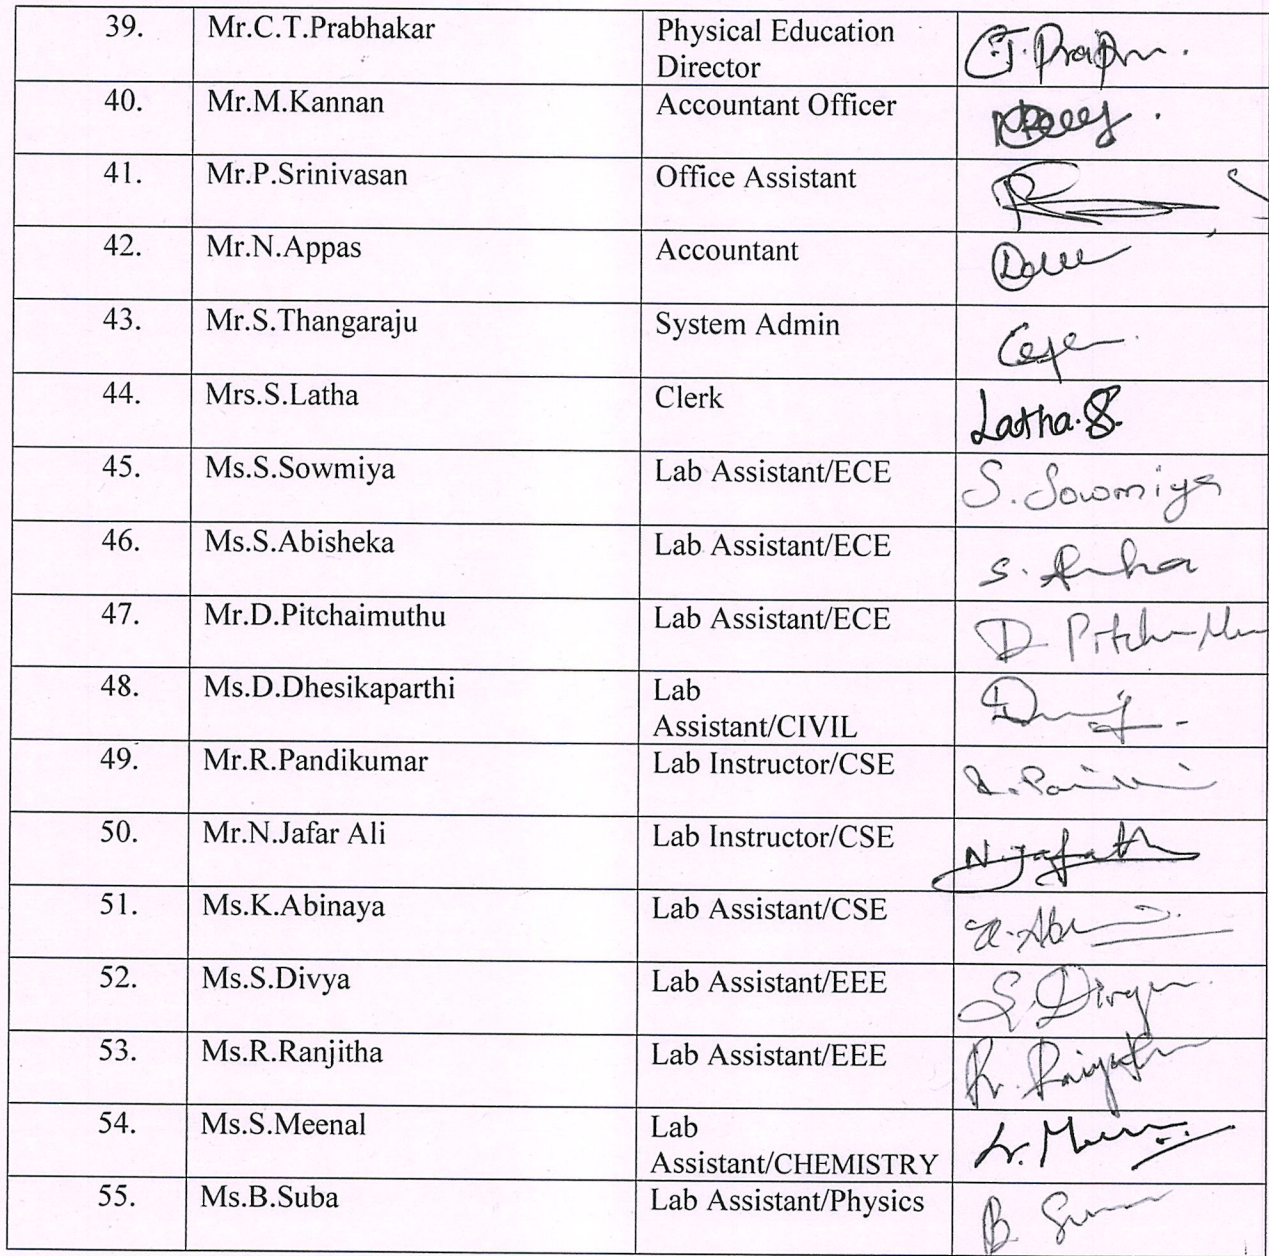 39. Mr.C.T.Prabhakar Physical Education
Director
40. Mr.M.Kannan Accountant Officer
41. Mr.P.Srinivasan Office Assistant
42. Mr.N.Appas Accountant
43. Mr.S.Thangaraju System Admin
44. Mrs.S.Latha Clerk Latha.S.
45. Ms.S.Sowmiya Lab Assistant/ECE S. Sowmiya
46. Ms.S.Abisheka Lab Assistant/ECE
47. Mr.D.Pitchaimuthu Lab Assistant/ECE
48. Ms.D.Dhesikaparthi Lab
Assistant/CIVIL
49. Mr.R.Pandikumar Lab Instructor/CSE
50. Mr.N.Jafar Ali Lab Instructor/CSE
51. Ms.K.Abinaya Lab Assistant/CSE
52. Ms.S.Divya Lab Assistant/EEE
53. Ms.R.Ranjitha Lab Assistant/EEE
54. Ms.S.Meenal Lab
Assistant/CHEMISTRY
55. Ms.B.Suba Lab Assistant/Physics